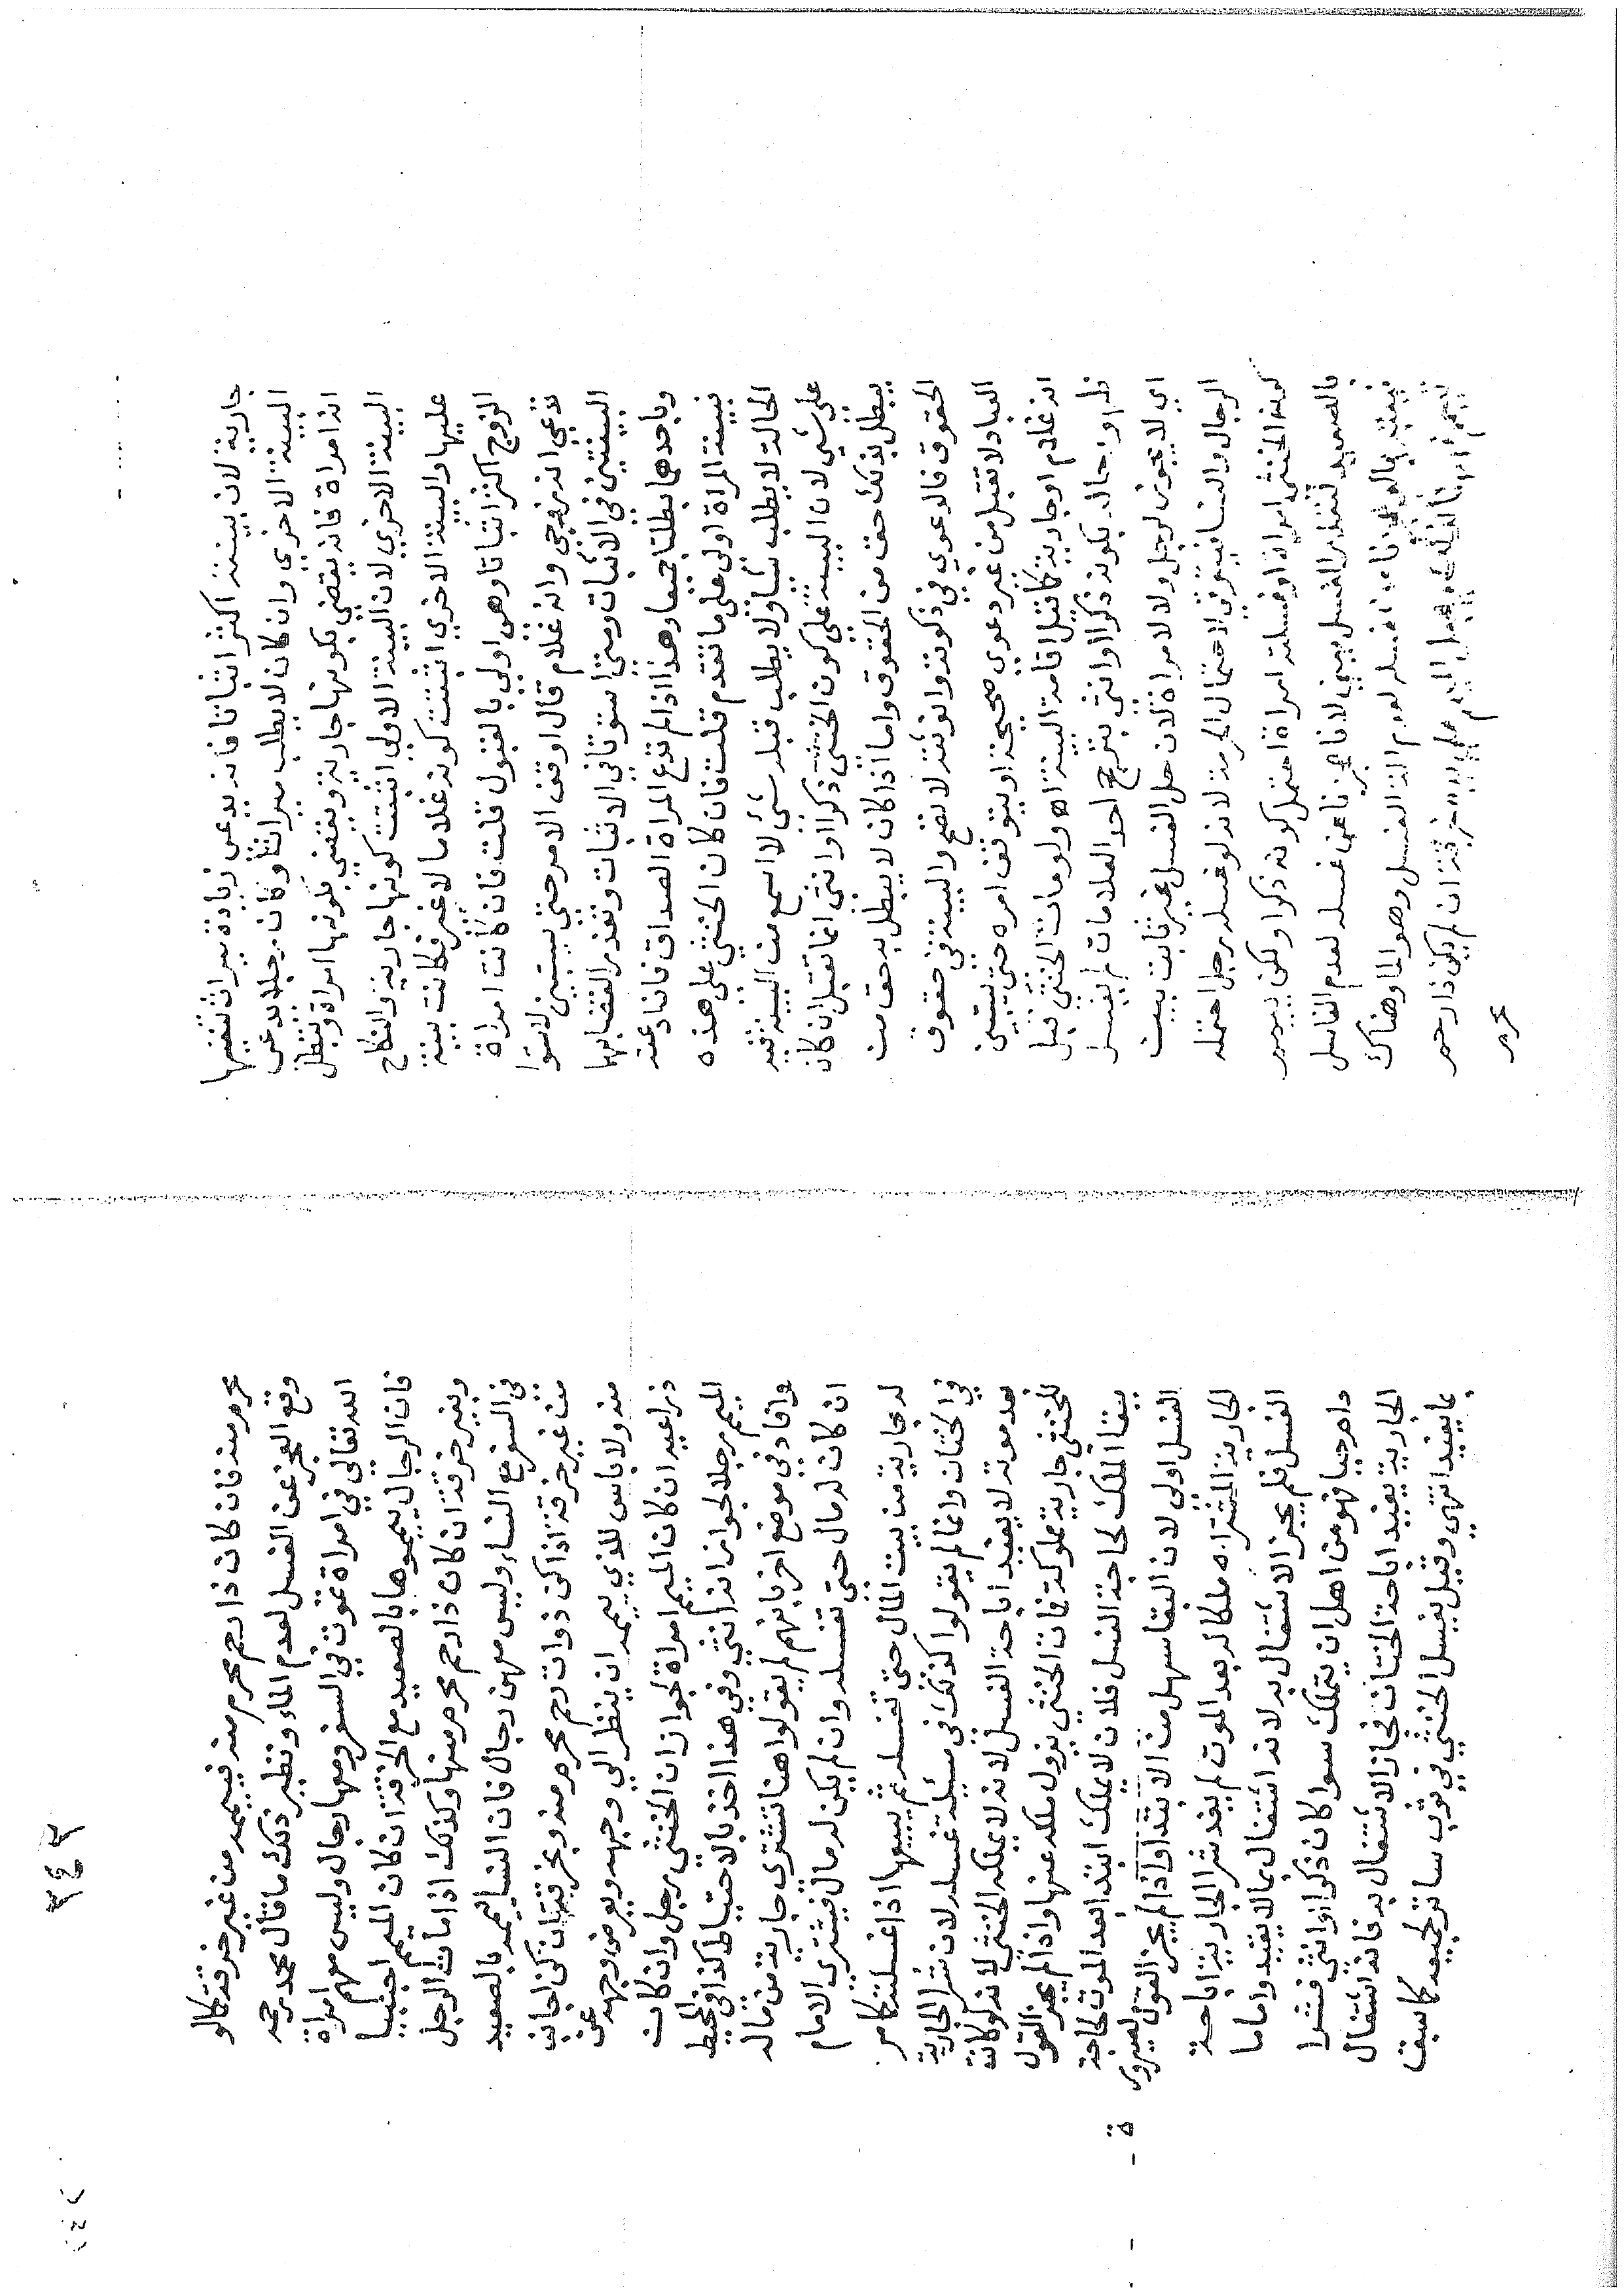 جارية لان بينته اكثر اثباتا فانه يدعي زيادة ميراث تنفيها
البينة الاخري وان كان لا يطلب ميراثا وكان رجلا يدعي
انه امراة فانه يقضي بكونها جارية ويقضي بكونها امراة وتبطل
البينة الاخري لان البينة الاولي اثبتت كونها جارية والنكاح
عليها والبينة الاخري اثبتت كونه غلاما لا غير فكانت بينة
الزوج اكثر اثباتا وهي اولي بالقبول قلت فان كانت امراة
تدعي انه زوجي وانه غلام قال اوقف الامر حتي يستبين لاستوا
البينتين في الاثبات ومتي استوتا في الاثبات وتعذر القضا بهما
وباحدهما بطلتا جميعا وهذا اذا لم تدع المراة الصداق فان ادعته
فبينة المراة اولي علي ما تقدم قلت فان كان الخنثي علي هذه
الحالة لا يطلب شيا ولا يطلب قبله شئ لا اسمع من البينة فيه
علي شي لان البينة علي كون الخنثي ذكرا او انثي انما تقبل ان كان
يبطل بذلك حق من الحقوق واما اذا كان لا يبطل به حق من
الحقوق فالدعوي في ذكورته وانوثته لا تصح والبينة في حقوق
العباد لا تقبل من غير دعوي صحيحة او يتوقف امره حتي يتبين
انه غلام او جارية كما قبل اقامة البينة اهـ ولو مات الخنثي قبل
ظهور حاله بكونه ذكرا او انثي بترجح احد العلامات لم يغسل
اي لا يجوز لرجل ولا لامراة لان حل الغسل غير ثابت بين
الرجال والنسا فيتوقي لاحتمال الحرمة لانه لو غسله رجل احتمل
كونه الخنثي امراة او غسلته امراة احتمل كونه ذكرا ولكن ييمم
بالصعيد لتعذر الغسل يعني لانا عجزنا عن غسله لعدم الغاسل
الة الغسل وهو الماء وهناك
ان لم يكن ذا رحم
محرم
٣٤٣
محرم منه فان كان ذا رحم محرم منه فييممه من غير خرقة كما لو
وقع العجز عن الغسل لعدم الماء ونظير ذلك ما قال محمد رحمه
الله تعالي في امراة تموت في السفر ومعها رجال وليس معهم امراة
فان الرجال ييممونها بالصعيد مع الخرقة ان كان الميمم اجنبيا
وبغير خرقة ان كان ذا رحم محرم منها وكذلك اذا مات الرجل
في السفر مع النساء وليس معهن رجال فان النسا يممنه بالصعيد
من غير خرقة اذا كن ذوات رحم محرم منه وبخرقة ان كن اجانب
منه ولا باس للذي ييممه ان ينظر الي وجهه ويعرض وجهه عن
ذراعيه ان كان الميمم امراة لجواز ان الخنثي رجل وان كان
الميمم رجلا لجواز انه انثي وفي هذا اخذ بالاحتياط كذا في المحيط
وافاد في موضع اخر بانهم لم يقولوا هنا تشتري جارية من ماله
ان كان له مال حتي تغسله وان لم يكن له مال فيشتري الامام
له جارية من بيت المال حتي تغسله ثم يبيعها اذا غسلته كما مر
في الختان وانما لم يقولوا كذلك في مسيلة غسله لان شرا الجارية
بعد موته لا يفيد اباحة الغسل لانه لا يملكه الخنثي لانه لو كانت
للخنثي جارية مملوكة فمات الخنثي يزول ملكه عنها واذا لم يجز القول
ببقا الملك لحاجة الغسل فلان لا يملك ابتدا بعد الموت لحاجة
الغسل اولي لان البقا سهل من الابتدا واذا لم يجز القول
الجارية المشتراه ملكا له بعد الموت لم يفد شرا الجارية اباحة
الغسل فلم يجز الاشتغال به لانه اشتغال بما لا يفيد واما ما
دام حيا فهو من اهل ان يتملك سوا كان ذكرا او انثي فشرا
الجارية يفيد اباحة الختان فجاز الاشتغال به فانه اشتغال
بما يفيد انتهي وقيل يغسل الخنثي في ثوب ساتر لجميعه كما سبق